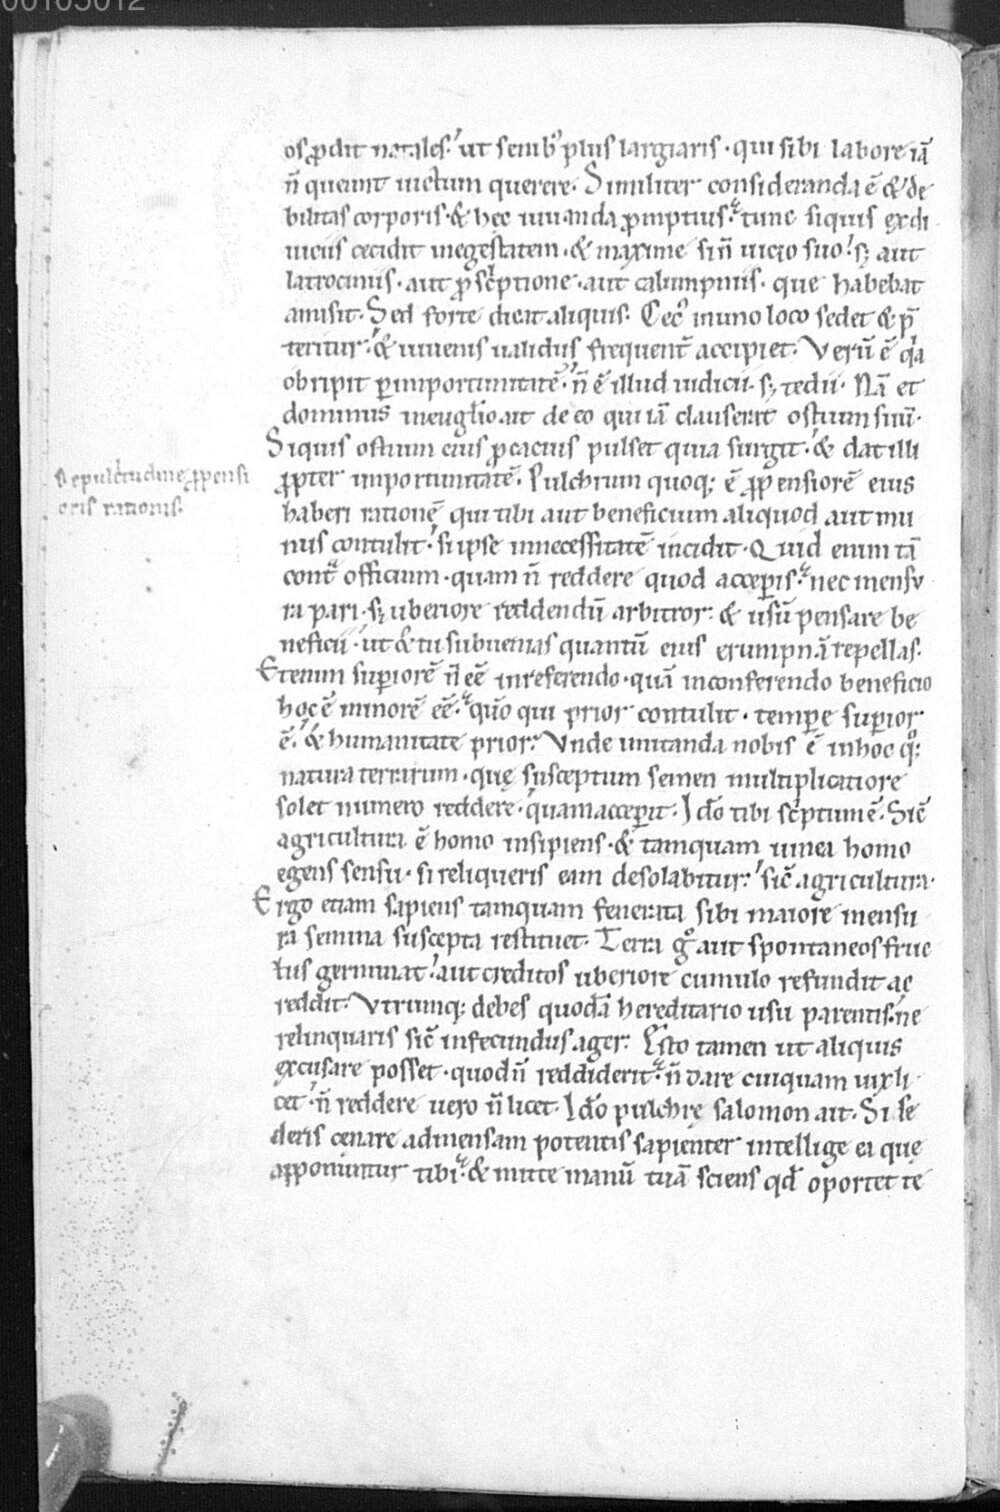 00105012
os ꝓdit natales. ut senib᷒ plus largiaris · qui sibi labore iā
n̄ queunt uictum querere. Similiter consideranda ē & de
bilitas corporis · & hec iuuanda ꝓmptius. tunc siquis ex di
uiciis cecidit in egestatem · & maxime si n̄ uicio suo. sꝫ aut
latrociniis · aut ꝓscͥptione · aut calumpniis · que habebat
amisit. Sed forte dicat aliquis. Cec᷒ in uno loco sedet & p̄
teritur. & iuuenis ualidus frequent̄ accipiet. Verū ē qͥa
obripit ꝑ importunitatē. n̄ ē illud iudicii · sꝫ tedii. Nā et
dominus in euglio ait de eo qui iā clauserat ostium suū.
Siquis ostium eius ꝓcacius pulset quia surgit. & dat illi
ꝓpter importunitatē. Pulchrum quoqꝫ ē ꝓpensiorē eius
De pulcritudine ꝓpensi
haberi rationē qui tibi aut beneficium aliquod aut mu
oris rationis.
nus contulit. si ipse in necessitatē incidit. Quid enim tā
contͣ officium · quam n̄ reddere quod acceperis. nec mensu
ra pari · sꝫ uberiore reddendū arbitror. & usū pensare be
neficii. ut & tu subuenias quantū eius erumpnā repellas.
Etenim superiorē n̄ eē in referendo · quā in conferendo beneficio
hoc ē minorē eē. quo qui prior contulit · tempe superior
ē. & humanitate prior. Vnde imitanda nobis ē in hoc qͦqꝫ
natura terrarum · que susceptum semen multiplicatiore
solet numero reddere · quam acceperit. Ido tibi scͥptum ē. Sic̄
agricultura ē homo insipiens · & tamquam uinea homo
egens sensu · si reliqueris eam desolabitur. sic̄ agricultura.
Ergo etiam sapiens tamquam fenerata sibi maiore mensu
ra semina suscepta restituet. Terra gͦ aut spontaneos fruc
tus germinat. aut creditos uberiore cumulo refundit ac
reddit. Vtrumqꝫ debes quodā hereditario usu parentis. ne
relinquaris sic̄ infecundus ager. Esto tamen ut aliquis
excusare posset · quod n̄ reddiderit. n̄ dare cuiquam uix li
cet. n̄ reddere uero n̄ licet. Ido pulchre salomon ait. Si se
deris cenare ad mensam potentis sapienter intellige ea que
apponuntur tibi. & mitte manū tuā sciens qd oportet te